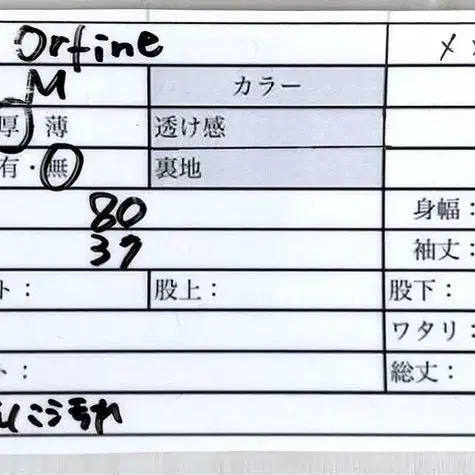 Orfine
M カラー
厚 薄 透け感
有・無 裏地
80 身幅：
37 袖丈：
ト： 股上： 股下：
ワタリ：
ト： 総丈：
こう汚れ